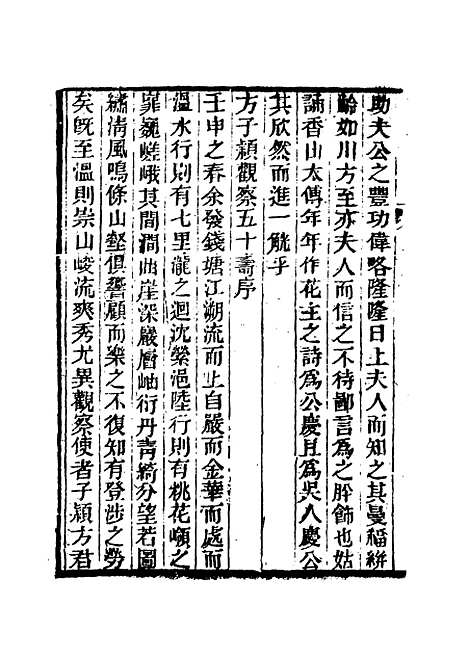 助夫公之豐功偉略隆隆日上夫人而知之其曼福緋
齡如川方至亦夫人而信之不待鄙言為之胖飾也姑
誦香山太傅年年作花主之詩為公慶且為吳人慶公
其欣然而進一觥乎
方子穎觀察五十壽序
壬申之春余發錢塘江溯流而上自嚴而金華而處而
溫水行則有七里瀧之迴沈縈浥陸行則有桃花嶺之
巃巍嵯峨其間澗曲崖深嚴層岫衍丹靑綺分望若圖
繡淸風鳴條山壑俱響顧而樂之不復知有登涉之勞
矣旣至溫則崇山峻流爽秀尤異觀察使者子穎方君